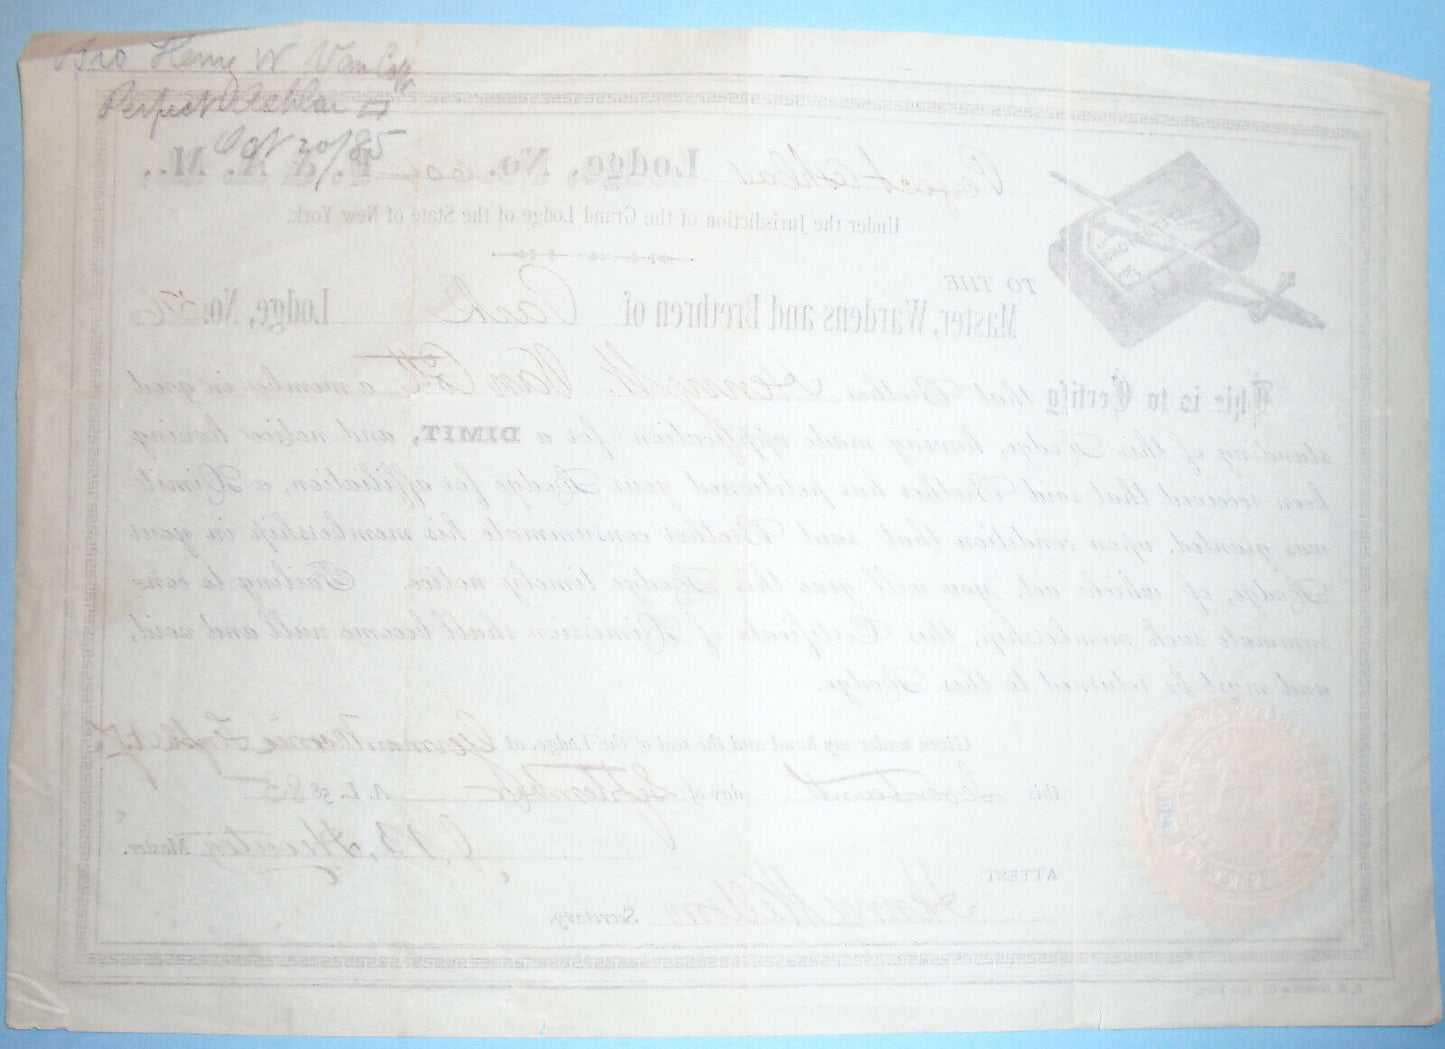 Bro Henry W Van Cott
Perfect Ashlar
Oct 20/85
Perfect Ashlar Lodge, No. 604 F. & A. M.,
Under the Jurisdiction of the Grand Lodge of the State of New York.
TO THE
Master, Wardens and Brethren of Pack Lodge, No.
This is to Certify that Brother Henry W. Van Cott a member in good
standing of this Lodge, having made application for a DIMIT, and notice having
been received that said Brother has petitioned your Lodge for affiliation, a Dimit
was granted, upon condition that said Brother consummate his membership in your
Lodge, of which act, you will give this Lodge timely notice. Failing to con-
summate such membership, this Certificate of Dimission shall become null and void,
and must be returned to this Lodge.
Given under my hand and the seal of the Lodge at
this Seventeenth day of September A. L. 5885
J. B. Hunter Master.
ATTEST
Henry Secretary.